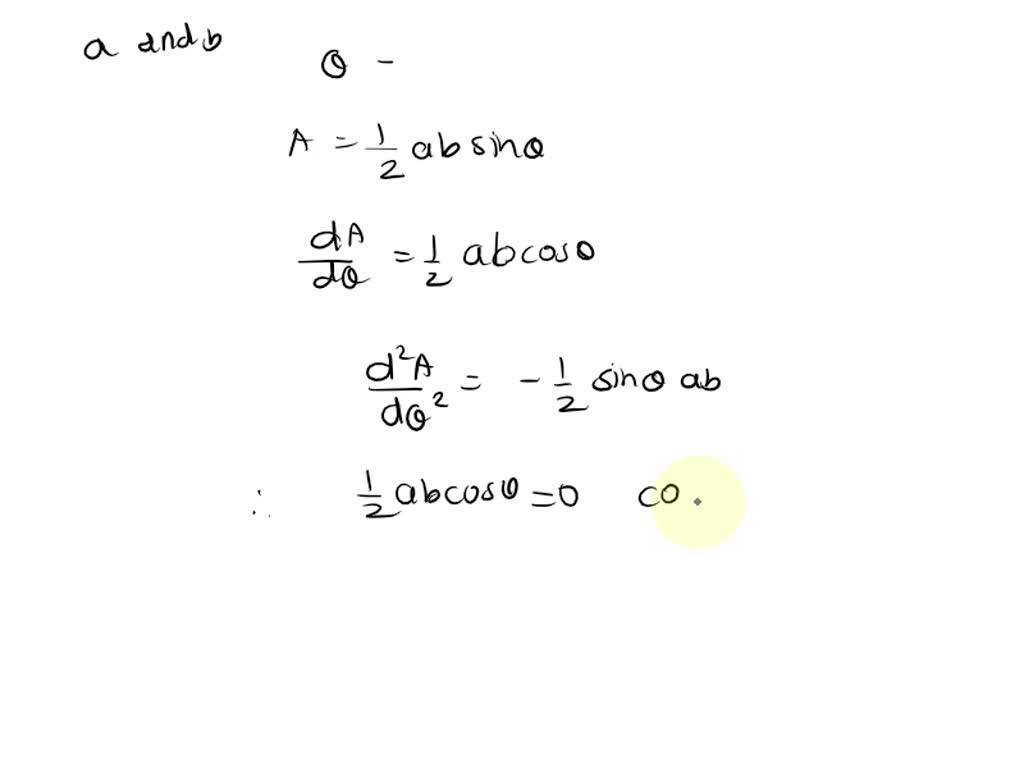 a and b
θ -
A = 1/2 ab sinθ
dA/dθ = 1/2 ab cosθ
d²A/dθ² = - 1/2 sinθ ab
∴ 1/2 ab cosθ = 0 co